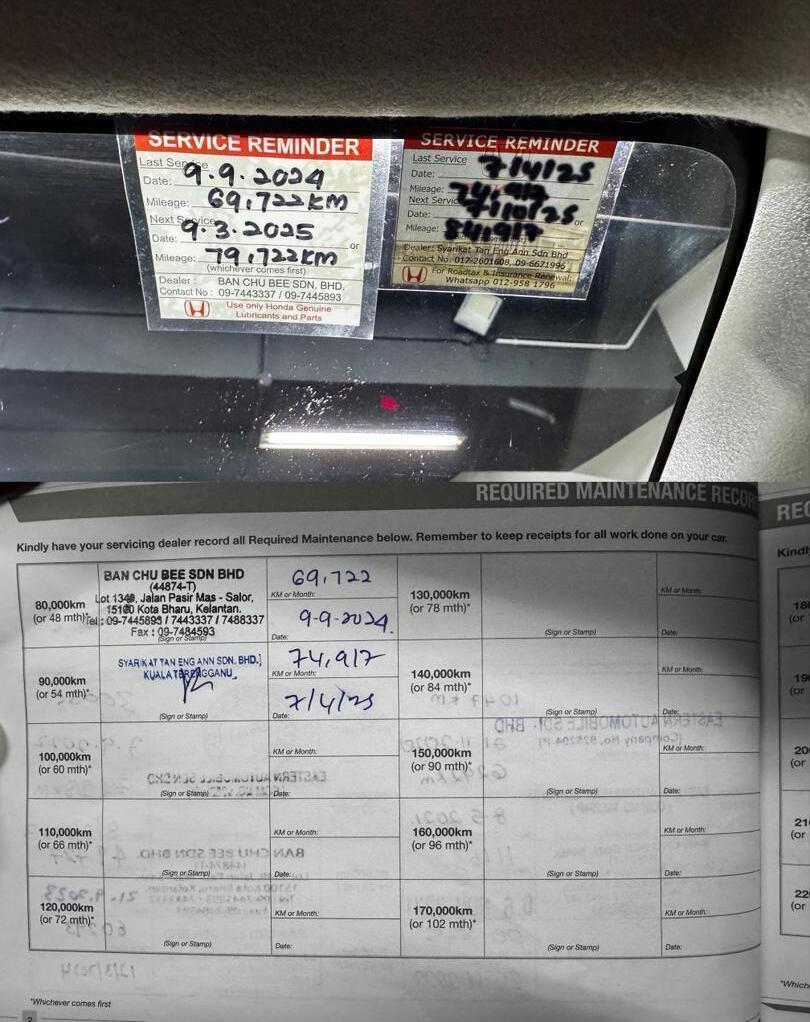 SERVICE REMINDER
Last Service
Date: 9.9.2024
Mileage: 69,722KM
Next Service
Date: 9.3.2025
or
Mileage: 79,722KM
(whichever comes first)
Dealer : BAN CHU BEE SDN. BHD.
Contact No : 09-7443337 / 09-7445893
Use only Honda Genuine
Lubricants and Parts
SERVICE REMINDER
Last Service
Date: 7/4/25
Mileage: 74,917
Next Service
Date: 7/10/25
or
Mileage: 84,917
Dealer: Syarikat Tan Eng Ann Sdn Bhd
Contact No: 017-2601608, 09-6671996
For Roadtax & Insurance Renewal:
Whatsapp 012-958 1796
REQUIRED MAINTENANCE RECOR
Kindly have your servicing dealer record all Required Maintenance below. Remember to keep receipts for all work done on your car.
80,000km
(or 48 mth)*
BAN CHU BEE SDN BHD
(44874-T)
Lot 1348, Jalan Pasir Mas - Salor,
15100 Kota Bharu, Kelantan.
Tel : 09-7445893 / 7443337 / 7488337
Fax : 09-7484593
(Sign or Stamp)
69,722
KM or Month:
9-9-2024.
Date:
90,000km
(or 54 mth)*
SYARIKAT TAN ENG ANN SDN. BHD.
KUALA TERENGGANU
(Sign or Stamp)
74,917
KM or Month:
7/4/25
Date:
100,000km
(or 60 mth)*
(Sign or Stamp)
KM or Month:
Date:
110,000km
(or 66 mth)*
(Sign or Stamp)
KM or Month:
Date:
120,000km
(or 72 mth)*
(Sign or Stamp)
KM or Month:
Date:
130,000km
(or 78 mth)*
(Sign or Stamp)
KM or Month:
Date:
140,000km
(or 84 mth)*
(Sign or Stamp)
KM or Month:
Date:
150,000km
(or 90 mth)*
(Sign or Stamp)
KM or Month:
Date:
160,000km
(or 96 mth)*
(Sign or Stamp)
KM or Month:
Date:
170,000km
(or 102 mth)*
(Sign or Stamp)
KM or Month:
Date:
*Whichever comes first
2
REC
Kindl
18
(or
19
(or
20
(or
21
(or
22
(or
*Which